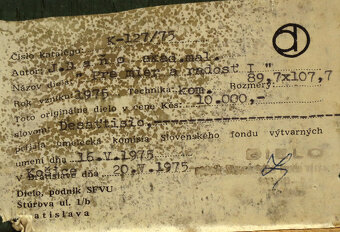 K-127/75
Číslo katalógu:
Autor: akad.mal.
Názov diela: " Pre mier a radosť I "
Rok vzniku: 1975 Technika: kom. Rozmery: 89,7x107,7
Toto originálne dielo v cene Kčs: 10.000,-
slovom: Desaťtisíc
prijala umelecká komisia Slovenského fondu výtvarných
umení dňa 16.V.1975
DIELO
v dňa 20.V.1975
Dielo, podnik SFVU
Štúrova ul. 1/b
Bratislava